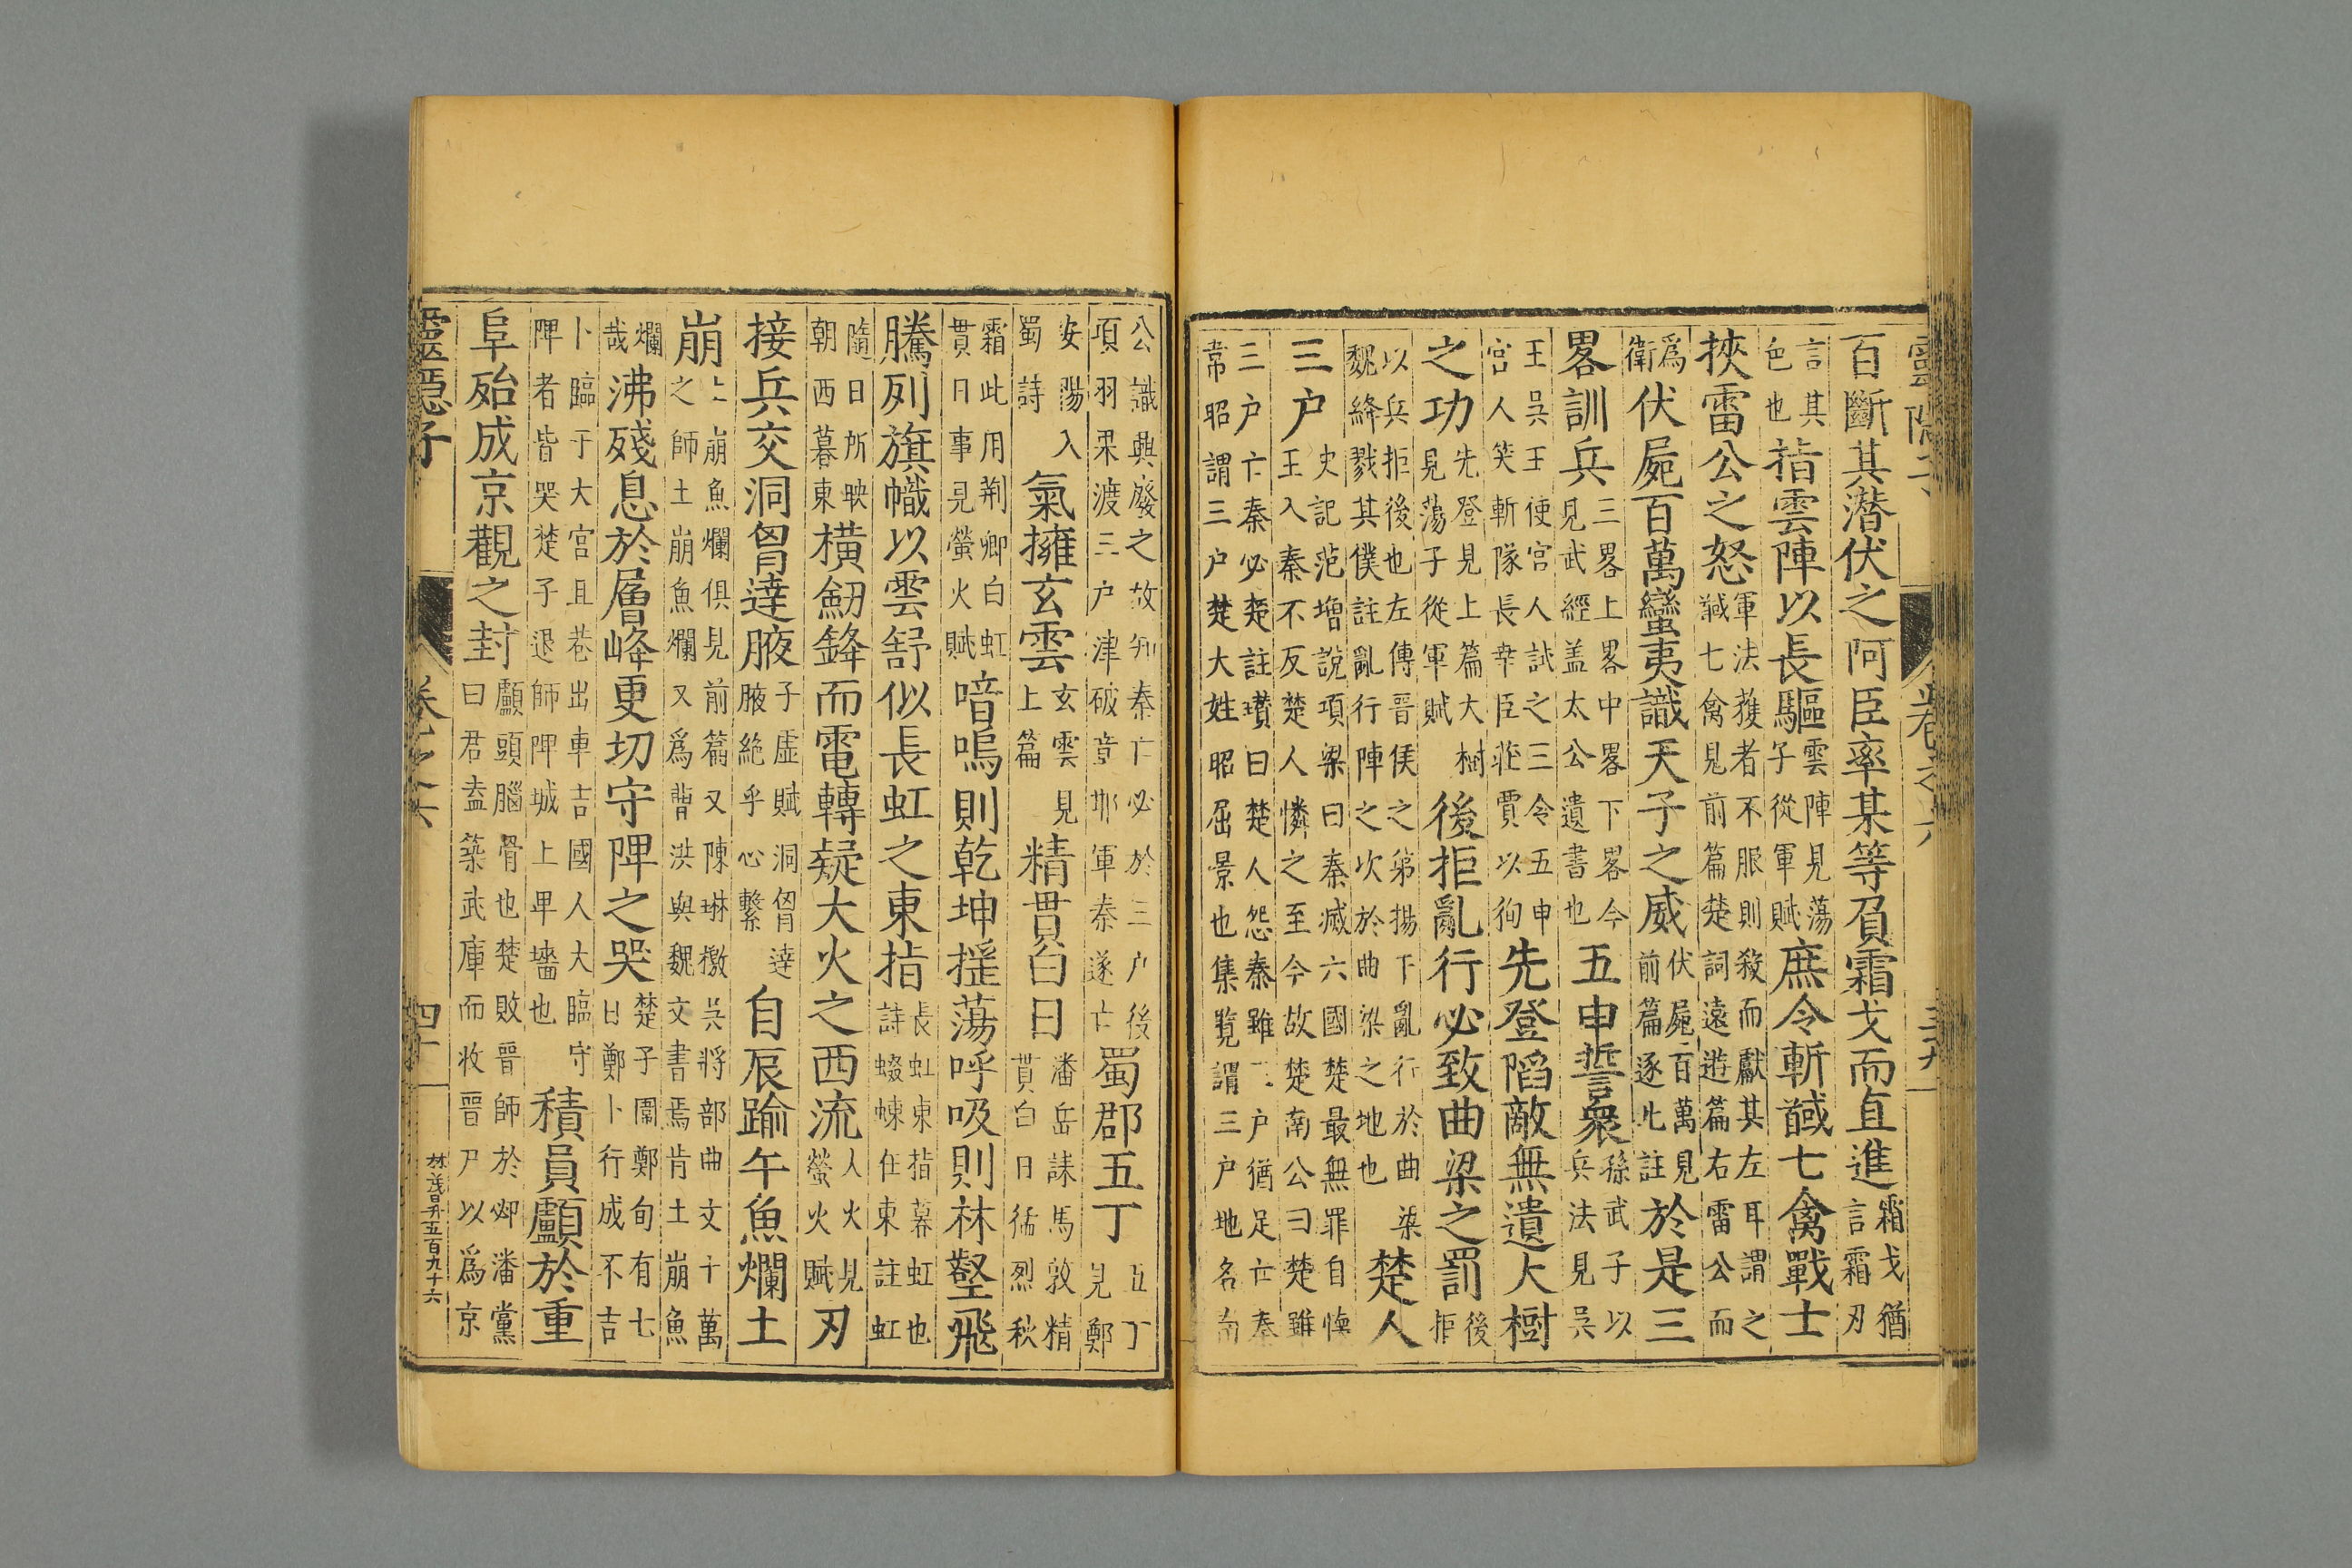 百斷其潜伏之阿臣率某等負霜戈而直進霜戈猶言霜刃
言其色也指雲陣以長驅雲陣見蕩子從軍賦庶令斬馘七禽戰士
挾雷公之怒軍法獲者不服則殺而獻其左耳謂之馘七禽見前篇楚詞遠遊篇右雷公而
爲衛伏屍百萬蠻夷識天子之威伏屍百萬見前篇逐北註於是三
畧訓兵三畧上畧中畧下畧今見武經盖太公遺書也五申誓衆孫武子以兵法見吳
王吳王使宮人試之三令五申宮人笑斬隊長幸臣莊賈以徇先登陷敵無遺大樹
之功先登見上篇大樹見蕩子從軍賦後拒亂行必致曲梁之罰後拒
以兵拒後也左傳晉侯之弟揚干亂行於曲梁魏絳戮其僕註亂行陣之次於曲梁之地也楚人
三户史記范增說項梁曰秦滅六國楚最無罪自懷王入秦不反楚人憐之至今故楚南公曰楚雖
三户亡秦必楚註瓚曰楚人怨秦雖三户猶足亡秦韋昭謂三户楚大姓昭屈景也集覧謂三户地名南
公識興廢之故知秦亡必於三户後項羽果渡三户津破章邯軍秦遂亡蜀郡五丁五丁見鄭
安陽入蜀詩氣擁玄雲玄雲見上篇精貫白日潘岳誄馬敦精貫白日猛烈秋
霜此用荆卿白虹貫日事見螢火賦喑嗚則乾坤摇蕩呼吸則林壑飛
騰列旗幟以雲舒似長虹之東指長虹東指幕虹也詩蝃蝀在東註虹
隨日所映朝西暮東横劒鋒而電轉疑大火之西流大火見螢火賦刃
接兵交洞胷達腋子虛賦洞胷達腋絶乎心繫自辰踰午魚爛土
崩土崩魚爛俱見前篇又陳琳檄吳將部曲文十萬之師土崩魚爛又爲曹洪與魏文書焉肯土崩魚
爛哉沸殘息於層峰更切守陴之哭楚子圍鄭旬有七日鄭卜行成不吉
卜臨于大宮且巷出車吉國人大臨守陴者皆哭楚子退師陴城上俾墻也積員顱於重
阜殆成京觀之封顱頭腦骨也楚敗晉師於邲潘黨曰君盍築武庫而收晉尸以爲京
靈隱子
卷之六
四十
林茂昇五百九十六